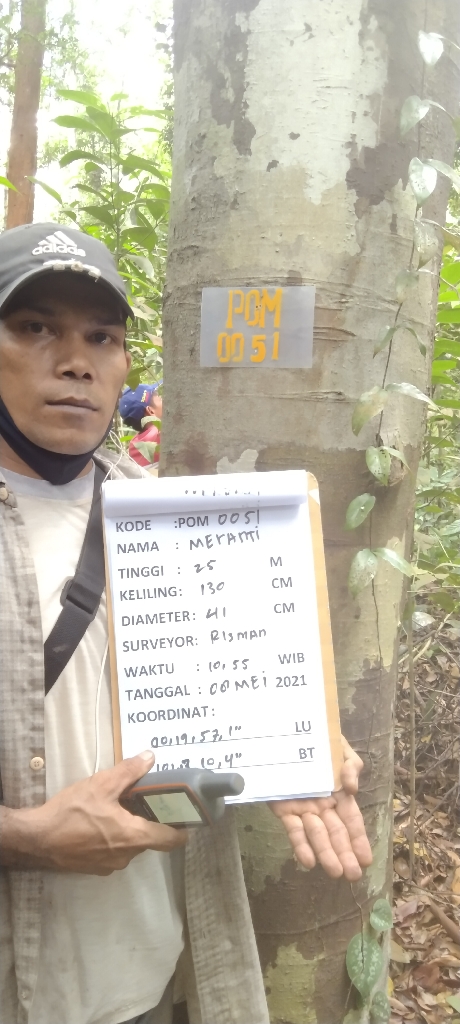 adidas
POM
0051
KODE :POM 0051
NAMA : MERANTI
TINGGI : 25 M
KELILING: 130 CM
DIAMETER: 41 CM
SURVEYOR: RISMAN
WAKTU : 10,55 WIB
TANGGAL : MEI 2021
KOORDINAT:
00,19,57,1" LU
10,4" BT